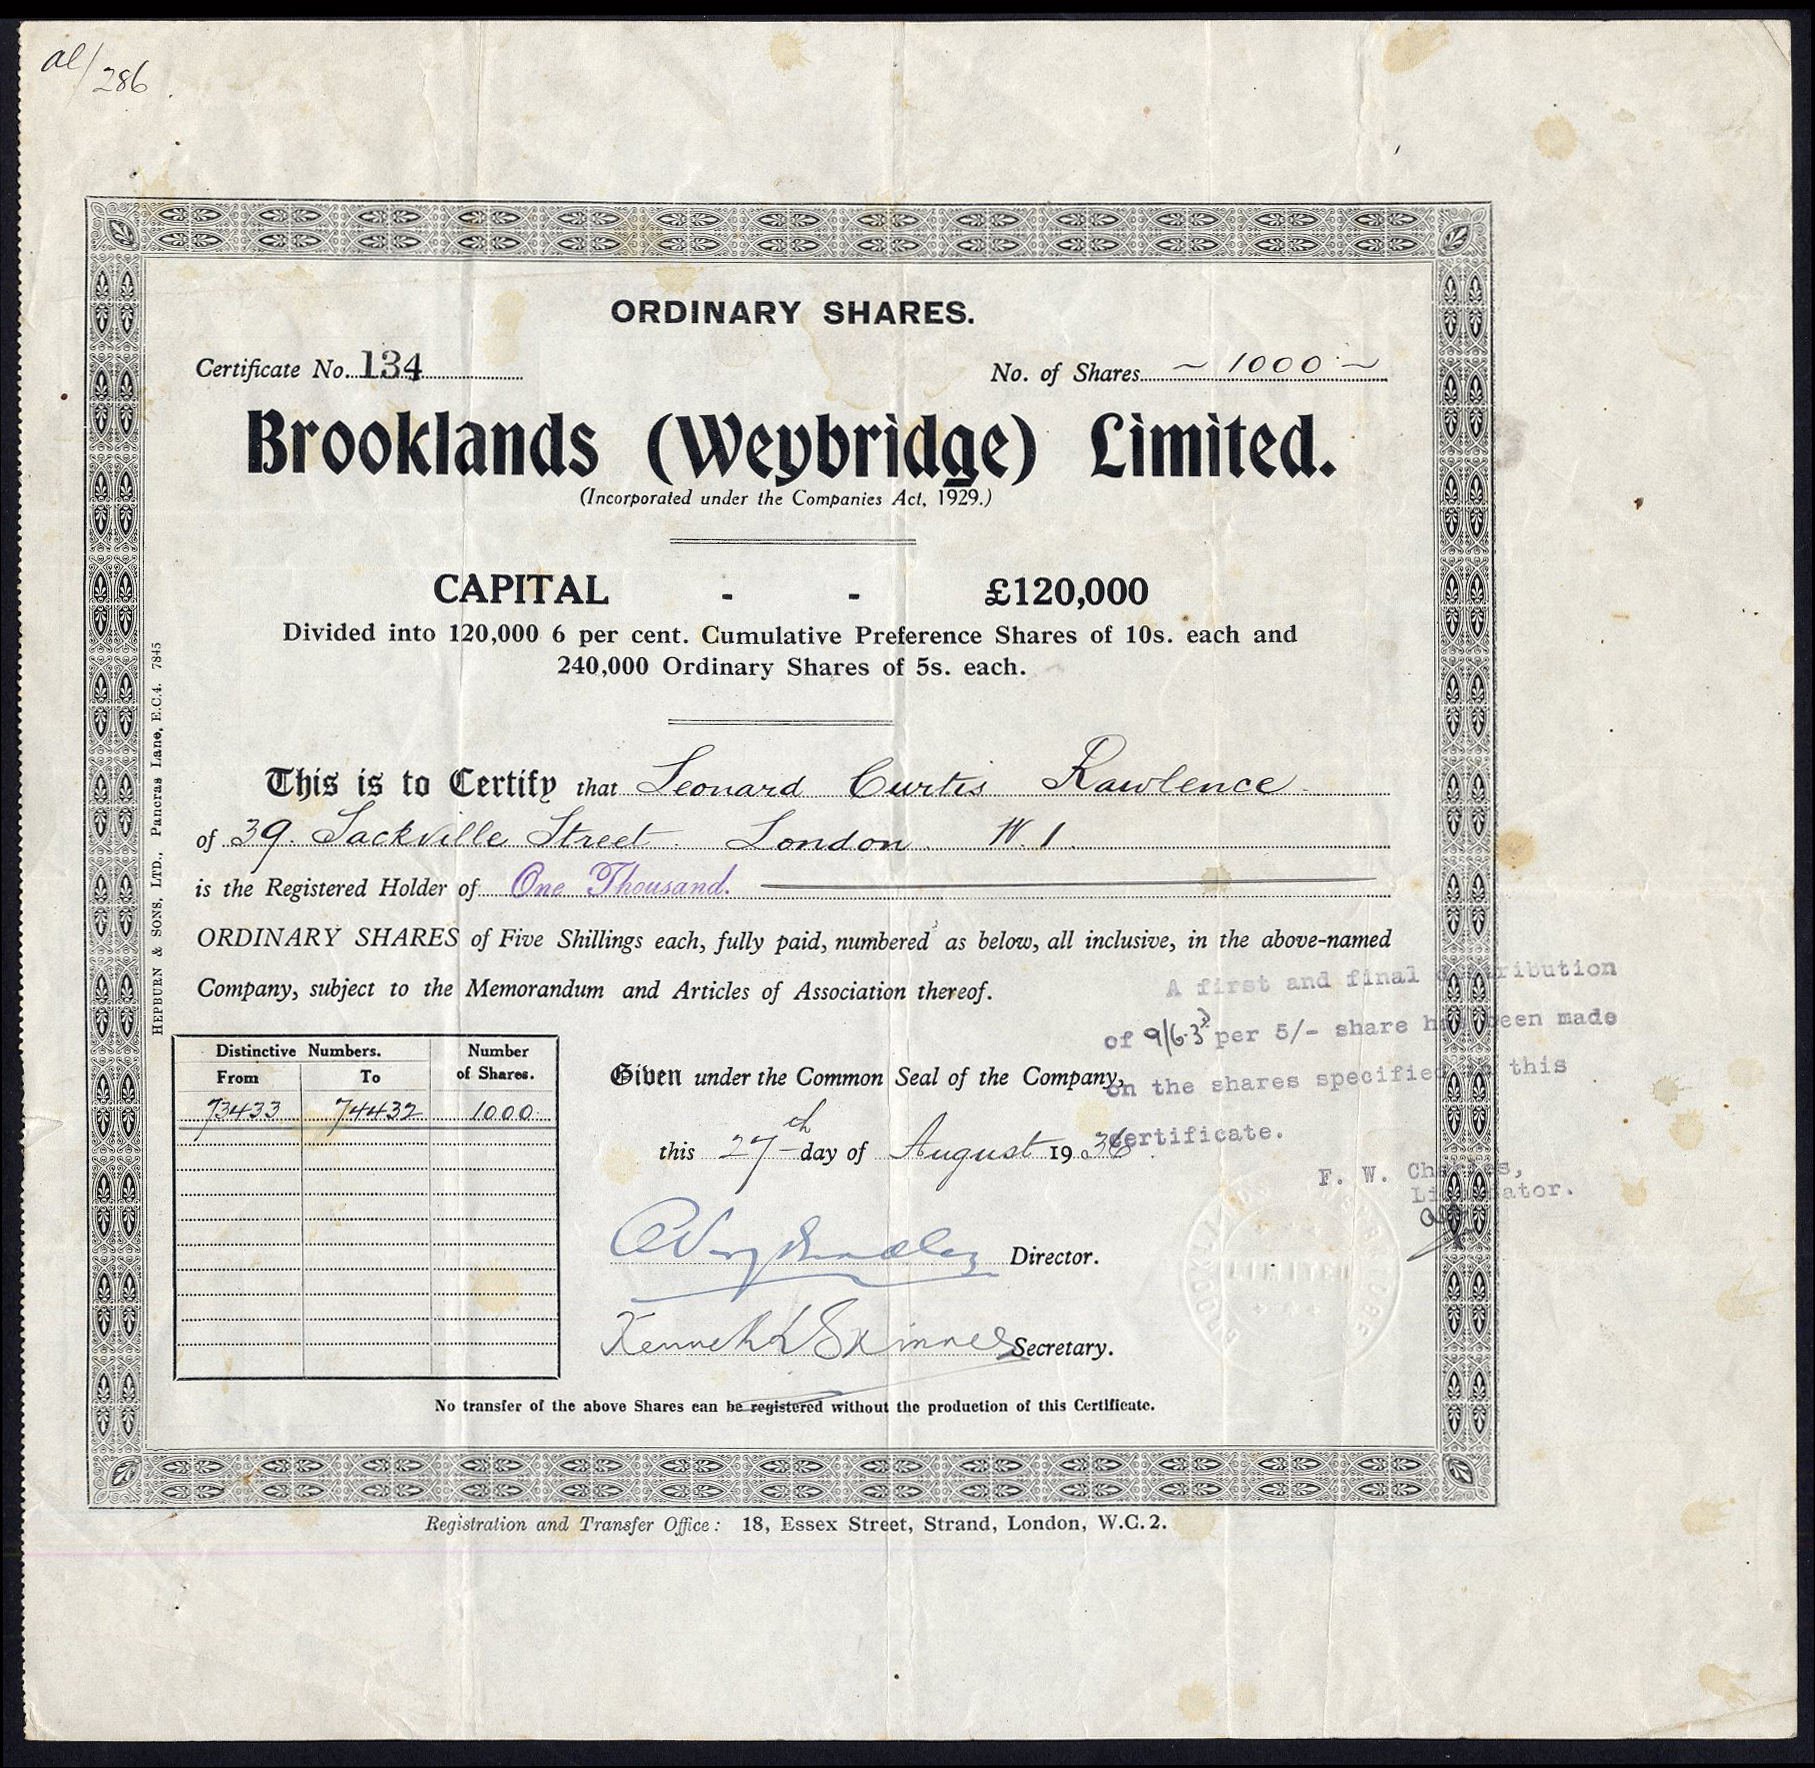 al/286
ORDINARY SHARES.
Certificate No. 134
No. of Shares ~ 1000 ~
Brooklands (Weybridge) Limited.
(Incorporated under the Companies Act, 1929.)
CAPITAL - - £120,000
Divided into 120,000 6 per cent. Cumulative Preference Shares of 10s. each and
240,000 Ordinary Shares of 5s. each.
This is to Certify that Leonard Curtis Rawlence
of 39. Sackville Street London W.1.
is the Registered Holder of One Thousand.
ORDINARY SHARES of Five Shillings each, fully paid, numbered as below, all inclusive, in the above-named
Company, subject to the Memorandum and Articles of Association thereof.
A first and final distribution
of 9/6.3d per 5/- share has been made
on the shares specified in this
certificate.
F. W. Charles,
Liquidator.
Distinctive Numbers. Number of Shares.
From To
73433 74432 1000
Given under the Common Seal of the Company,
this 27th day of August 1936.
Director.
Kenneth L Skinner Secretary.
BROOKLANDS
LIMITED
No transfer of the above Shares can be registered without the production of this Certificate.
Registration and Transfer Office: 18, Essex Street, Strand, London, W.C.2.
HEPBURN & SONS, LTD., Pancras Lane, E.C.4. 7845